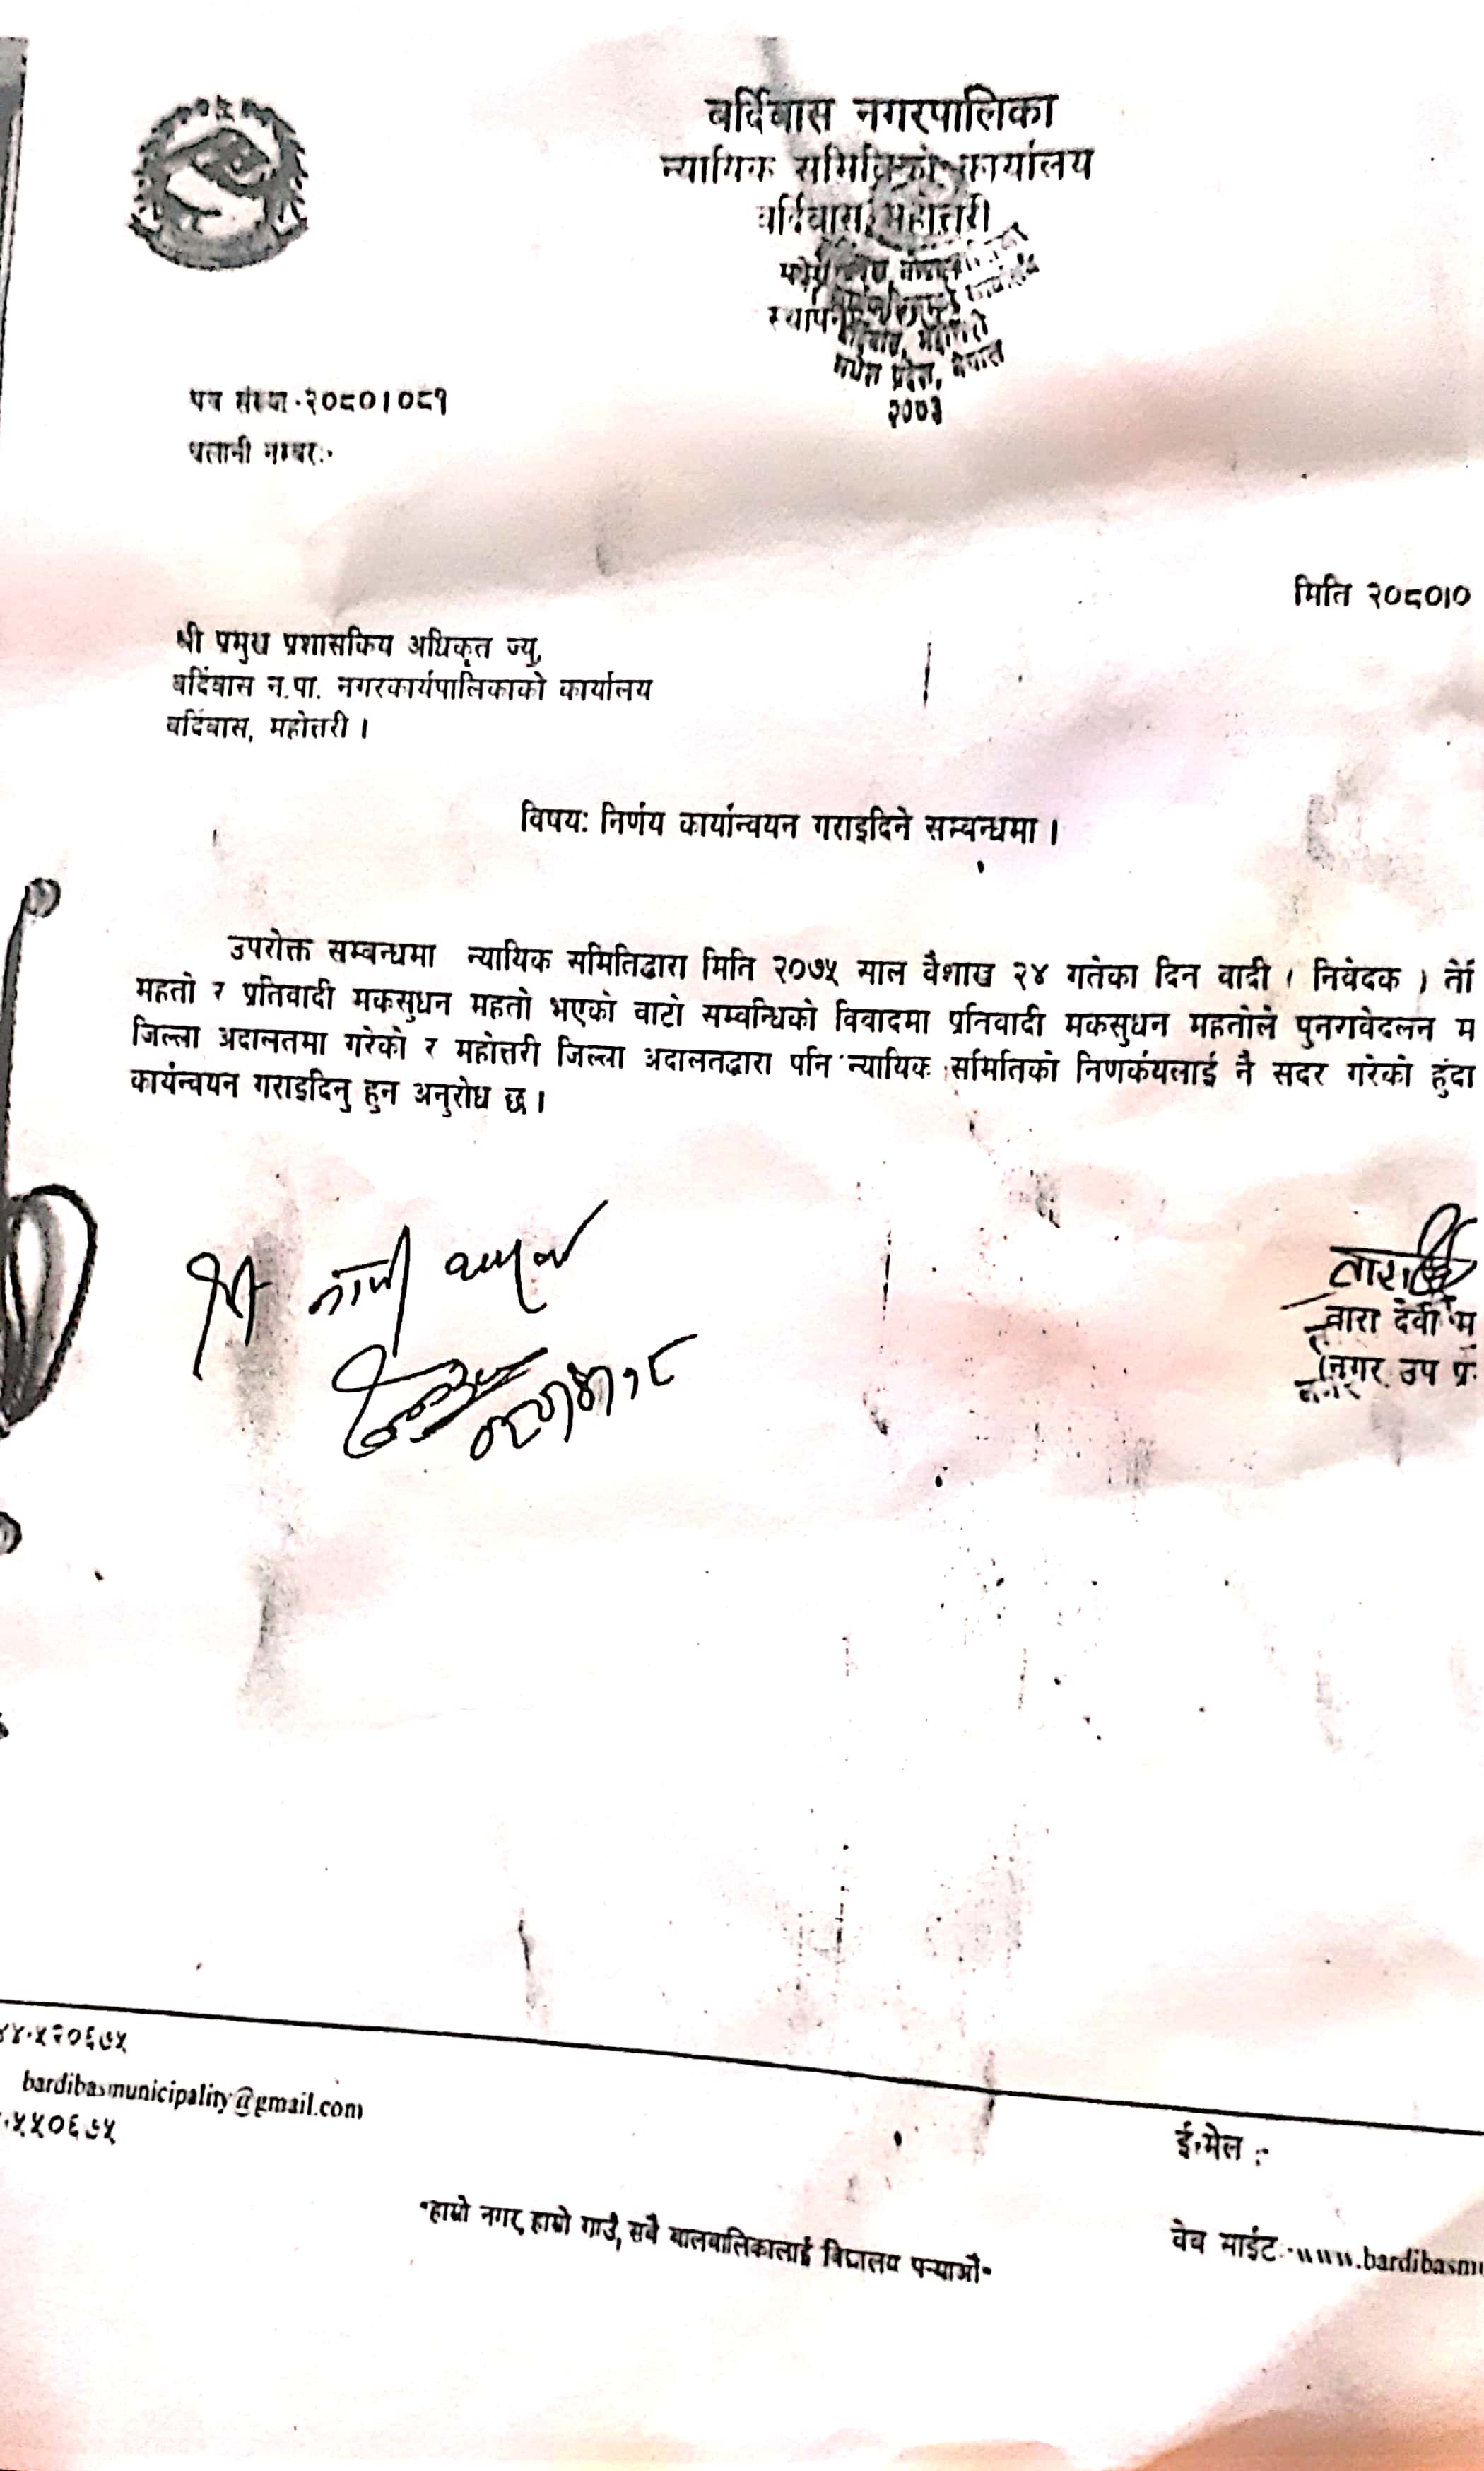 बर्दिबास नगरपालिका
न्यायिक समितिको कार्यालय
बर्दिबास, महोत्तरी
मधेश प्रदेश, नेपाल
२००३
पत्र संख्या-२०८०।०८१
चलानी नम्बर:-
मिति २०८०।०
श्री प्रमुख प्रशासकिय अधिकृत ज्यु,
बर्दिबास न.पा. नगरकार्यपालिकाको कार्यालय
बर्दिबास, महोत्तरी ।
विषय: निर्णय कार्यान्वयन गराइदिने सम्बन्धमा ।
उपरोक्त सम्बन्धमा न्यायिक समितिद्वारा मिति २०७५ साल वैशाख २४ गतेका दिन वादी ( निवेदक )
महतो र प्रतिवादी मकसुधन महतो भएको वाटो सम्वन्धिको विवादमा प्रतिवादी मकसुधन महतोले पुनरावेदलन म
जिल्ला अदालतमा गरेको र महोत्तरी जिल्ला अदालतद्वारा पनि न्यायिक समितिको निणर्कयलाई नै सदर गरेको हुंदा
कार्यन्वयन गराइदिनु हुन अनुरोध छ ।
तारा देवी म
नगर उप प्र
४४-५२०६७५
bardibasmunicipality@gmail.com
-५५०६७५
ई-मेल :-
वेब साईट:-www.bardibasmu
"हाम्रो नगर, हाम्रो गाउँ, सबै बालबालिकालाई बिद्यालय पर्‍याऔ"